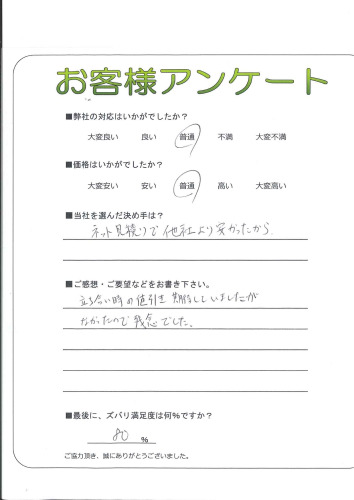 お客様アンケート
■弊社の対応はいかがでしたか？
大変良い 良い 普通 不満 大変不満
■価格はいかがでしたか？
大変安い 安い 普通 高い 大変高い
■当社を選んだ決め手は？
ネット見積りで他社より安かったから
■ご感想・ご要望などをお書き下さい。
立ち合い時の値引き期待していましたが
なかったので残念でした。
■最後に、ズバリ満足度は何％ですか？
80 ％
ご協力頂き、誠にありがとうございました。